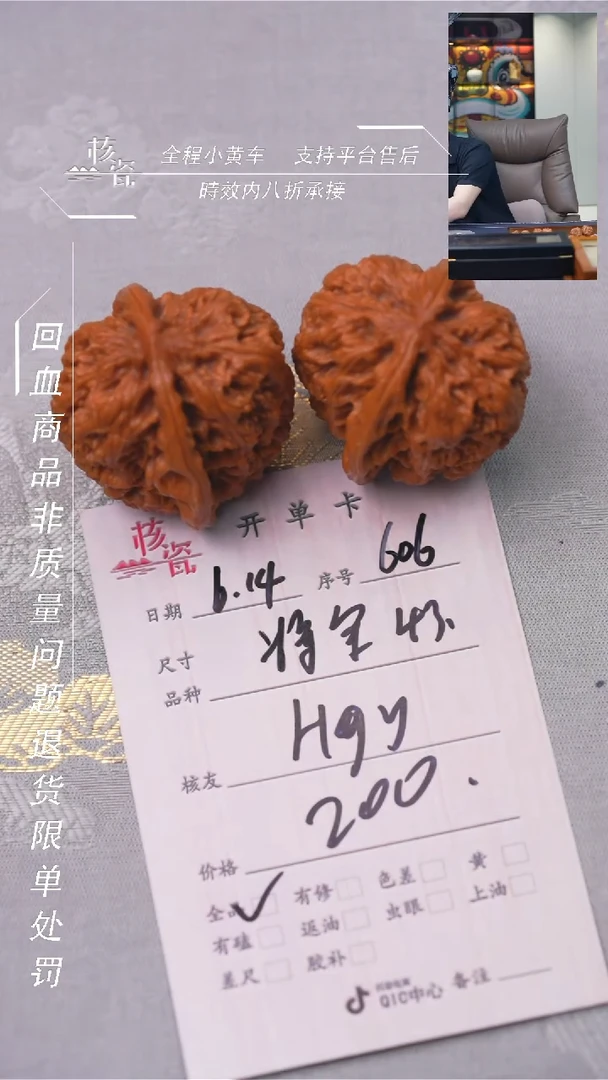 核瓷
全程小黄车 支持平台售后
時效内八折承接
回血商品非质量问题退货限单处罚
核瓷
开单卡
日期 6.14 序号 606
尺寸
品种
核友 Hgy
价格 200.
全品 有修 色差 黄
有磕 返油 虫眼 上油
差尺 胶补
QIC中心 备注